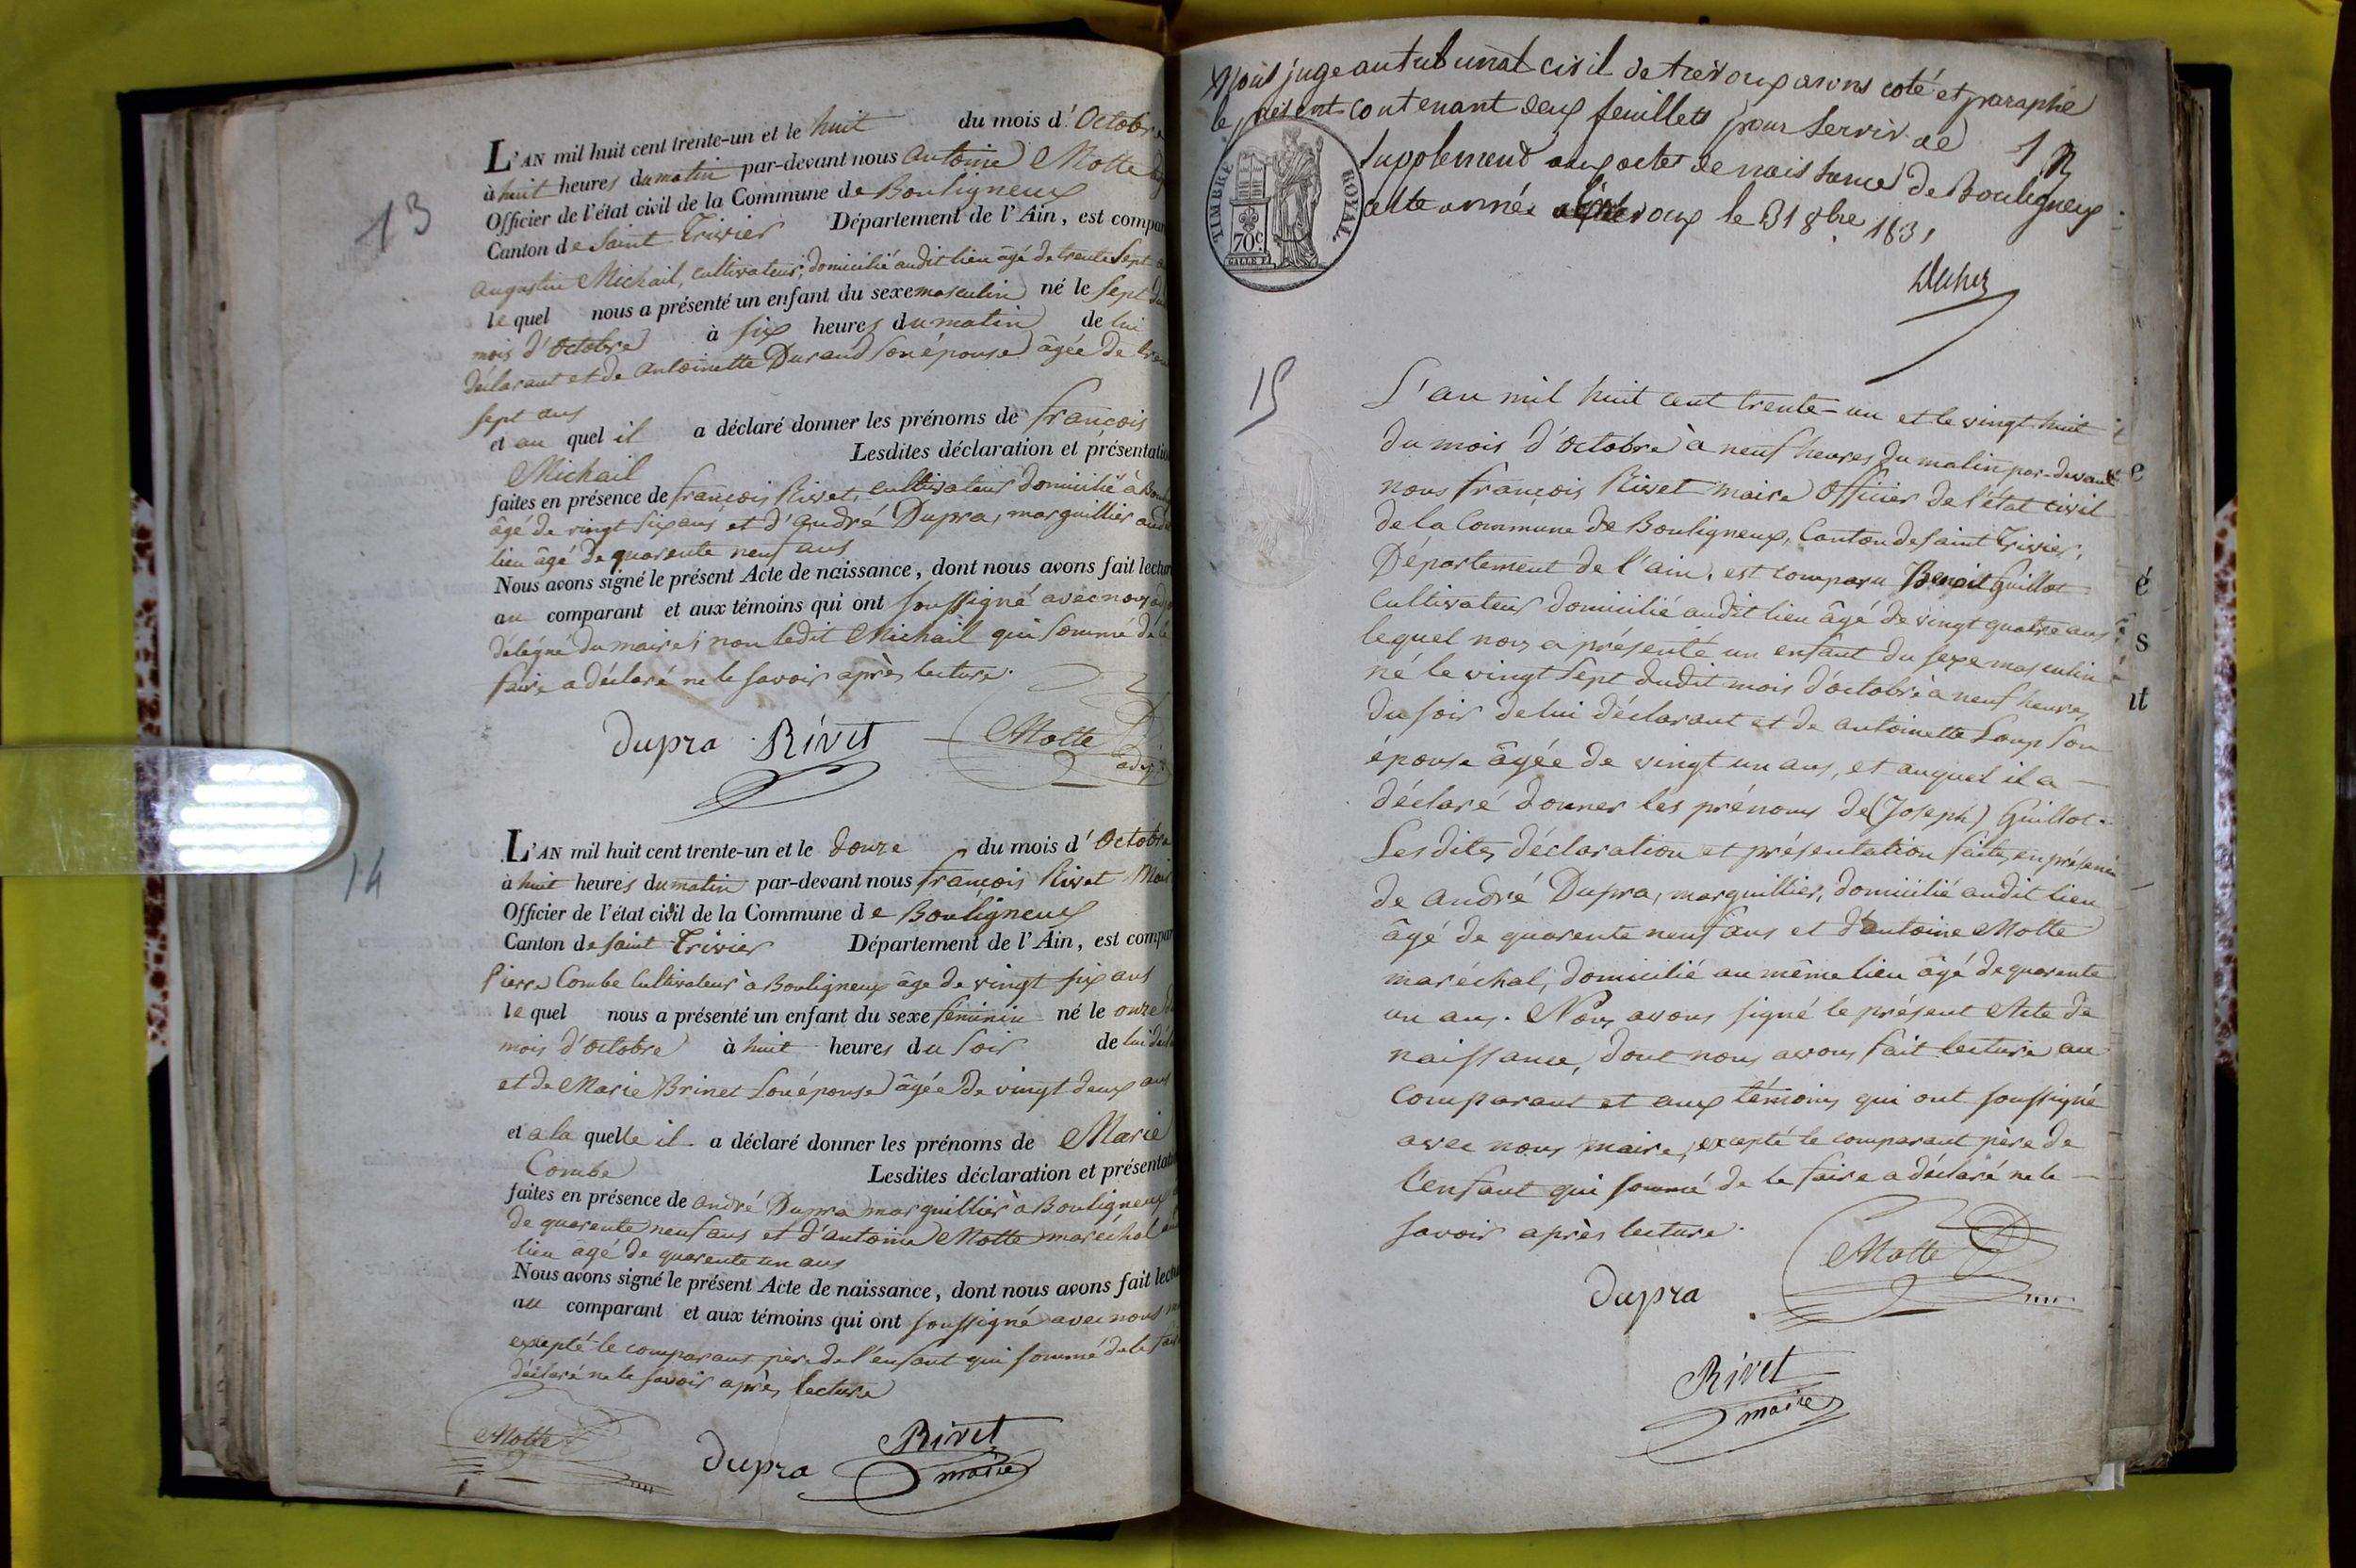 13
L'AN mil huit cent trente-un et le huit du mois d'Octobre
à huit heures du matin par-devant nous Antoine Motte
Officier de l'état civil de la Commune de Bouligneux
Canton de Saint Trivier Département de l'Ain, est compar
Augustin Michail, cultivateur, domicilié audit lieu âgé de trente sept
lequel nous a présenté un enfant du sexe masculin né le sept du
mois d'Octobre à six heures du matin de lui
déclarant et de Antoinette Durand son épouse âgée de tren
sept ans
et au quel il a déclaré donner les prénoms de françois
Michail Lesdites déclaration et présentatio
faites en présence de françois Rivet, cultivateur domicilié à Bou
âgé de vingt six ans, et d'andré Dupra, marguillier aud
lieu âgé de quarente neuf ans
Nous avons signé le présent Acte de naissance, dont nous avons fait lectur
au comparant et aux témoins qui ont soussigné avec nous adj
délégué du maire, non ledit Michail qui sommé de le
faire a déclaré ne le savoir après lecture.
Dupra Rivet Motte
adj
14
L'AN mil huit cent trente-un et le douze du mois d'Octobre
à huit heures du matin par-devant nous françois Rivet Mai
Officier de l'état civil de la Commune de Bouligneux
Canton de Saint Trivier Département de l'Ain, est compar
Pierre Combe Cultivateur à Bouligneux âge de vingt six ans
lequel nous a présenté un enfant du sexe féminin né le onze du
mois d'Octobre à huit heures du soir de lui décla
et de Marie Brinet son épouse âgée de vingt deux ans
et a la quelle il a déclaré donner les prénoms de Marie
Combe Lesdites déclaration et présentati
faites en présence de andré Dupra marguillier à Bouligneux
de quarente neuf ans et d'antoine Motte maréchal au
lieu âgé de quarente un ans
Nous avons signé le présent Acte de naissance, dont nous avons fait lectu
au comparant et aux témoins qui ont soussigné avec nous
excepté le comparant père de l'enfant qui sommé de le fai
déclaré ne le savoir après lecture
Motte Dupra Rivet
maire
Nous juge au tribunal civil de trevoux avons coté et paraphé
le présent contenant deux feuillets pour servir de
supplement aux actes de naissance de Bouligneux
TIMBRE ROYAL
70c
cette année trevoux le 31 8bre 1831
15
L'an mil huit cent trente-un et le vingt huit
du mois d'Octobre à neuf heures du matin par-devant
nous françois Rivet maire Officier de l'état civil
de la Commune de Bouligneux, Canton de Saint Trivier,
Département de l'ain, est comparu Benoit Guillot
Cultivateur domicilié audit lieu âgé de vingt quatre ans
lequel nous a présenté un enfant du sexe masculin
né le vingt sept dudit mois d'octobre à neuf heures
du soir de lui déclarant et de antoinette Loup son
épouse âgée de vingt un ans, et auquel il a
déclaré donner les prénoms de (Joseph) Guillot.
Lesdites déclaration et présentation faites en présence
de andré Dupra, marguillier, domicilié audit lieu
âgé de quarente neuf ans et d'antoine Motte
maréchal, domicilié au même lieu âgé de quarente
un ans. Nous avons signé le présent Acte de
naissance, dont nous avons fait lecture au
Comparant et aux témoins qui ont soussigné
avec nous maire, excepté le comparant père de
l'enfant qui sommé de le faire a déclaré ne le
savoir après lecture.
Motte
Dupra
Rivet
maire